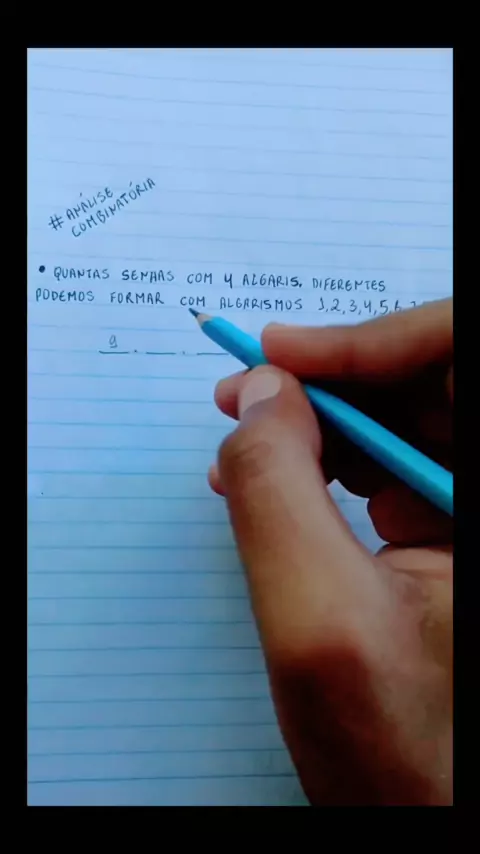 #ANÁLISE
COMBINATÓRIA
• QUANTAS SENHAS COM 4 ALGARIS. DIFERENTES
PODEMOS FORMAR COM ALGARISMOS 1,2,3,4,5,6,
9 . __ . __